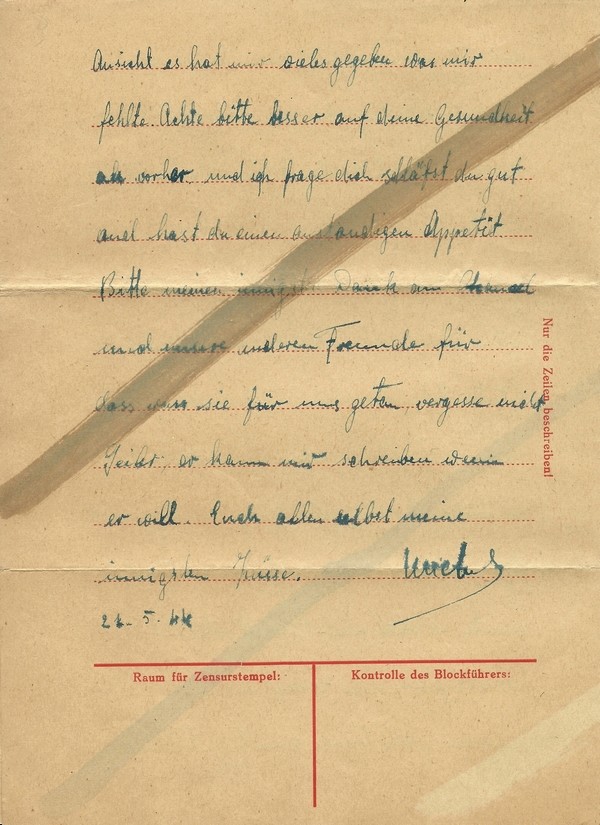 Ansicht es hat mir vieles gegeben was mir
fehlte Achte bitte besser auf deine Gesundheit
als vorher und ich frage dich schläfst du gut
und hast du einen anständigen Appetit
Bitte meinen innigste Dank an
und unsere anderen Freunde für
dass was sie für uns getan vergesse nicht
er kann mir schreiben wenn
er will. Euch allen selbst meine
innigsten Küsse.
5. 44
Nur die Zeilen beschreiben!
Raum für Zensurstempel:
Kontrolle des Blockführers: